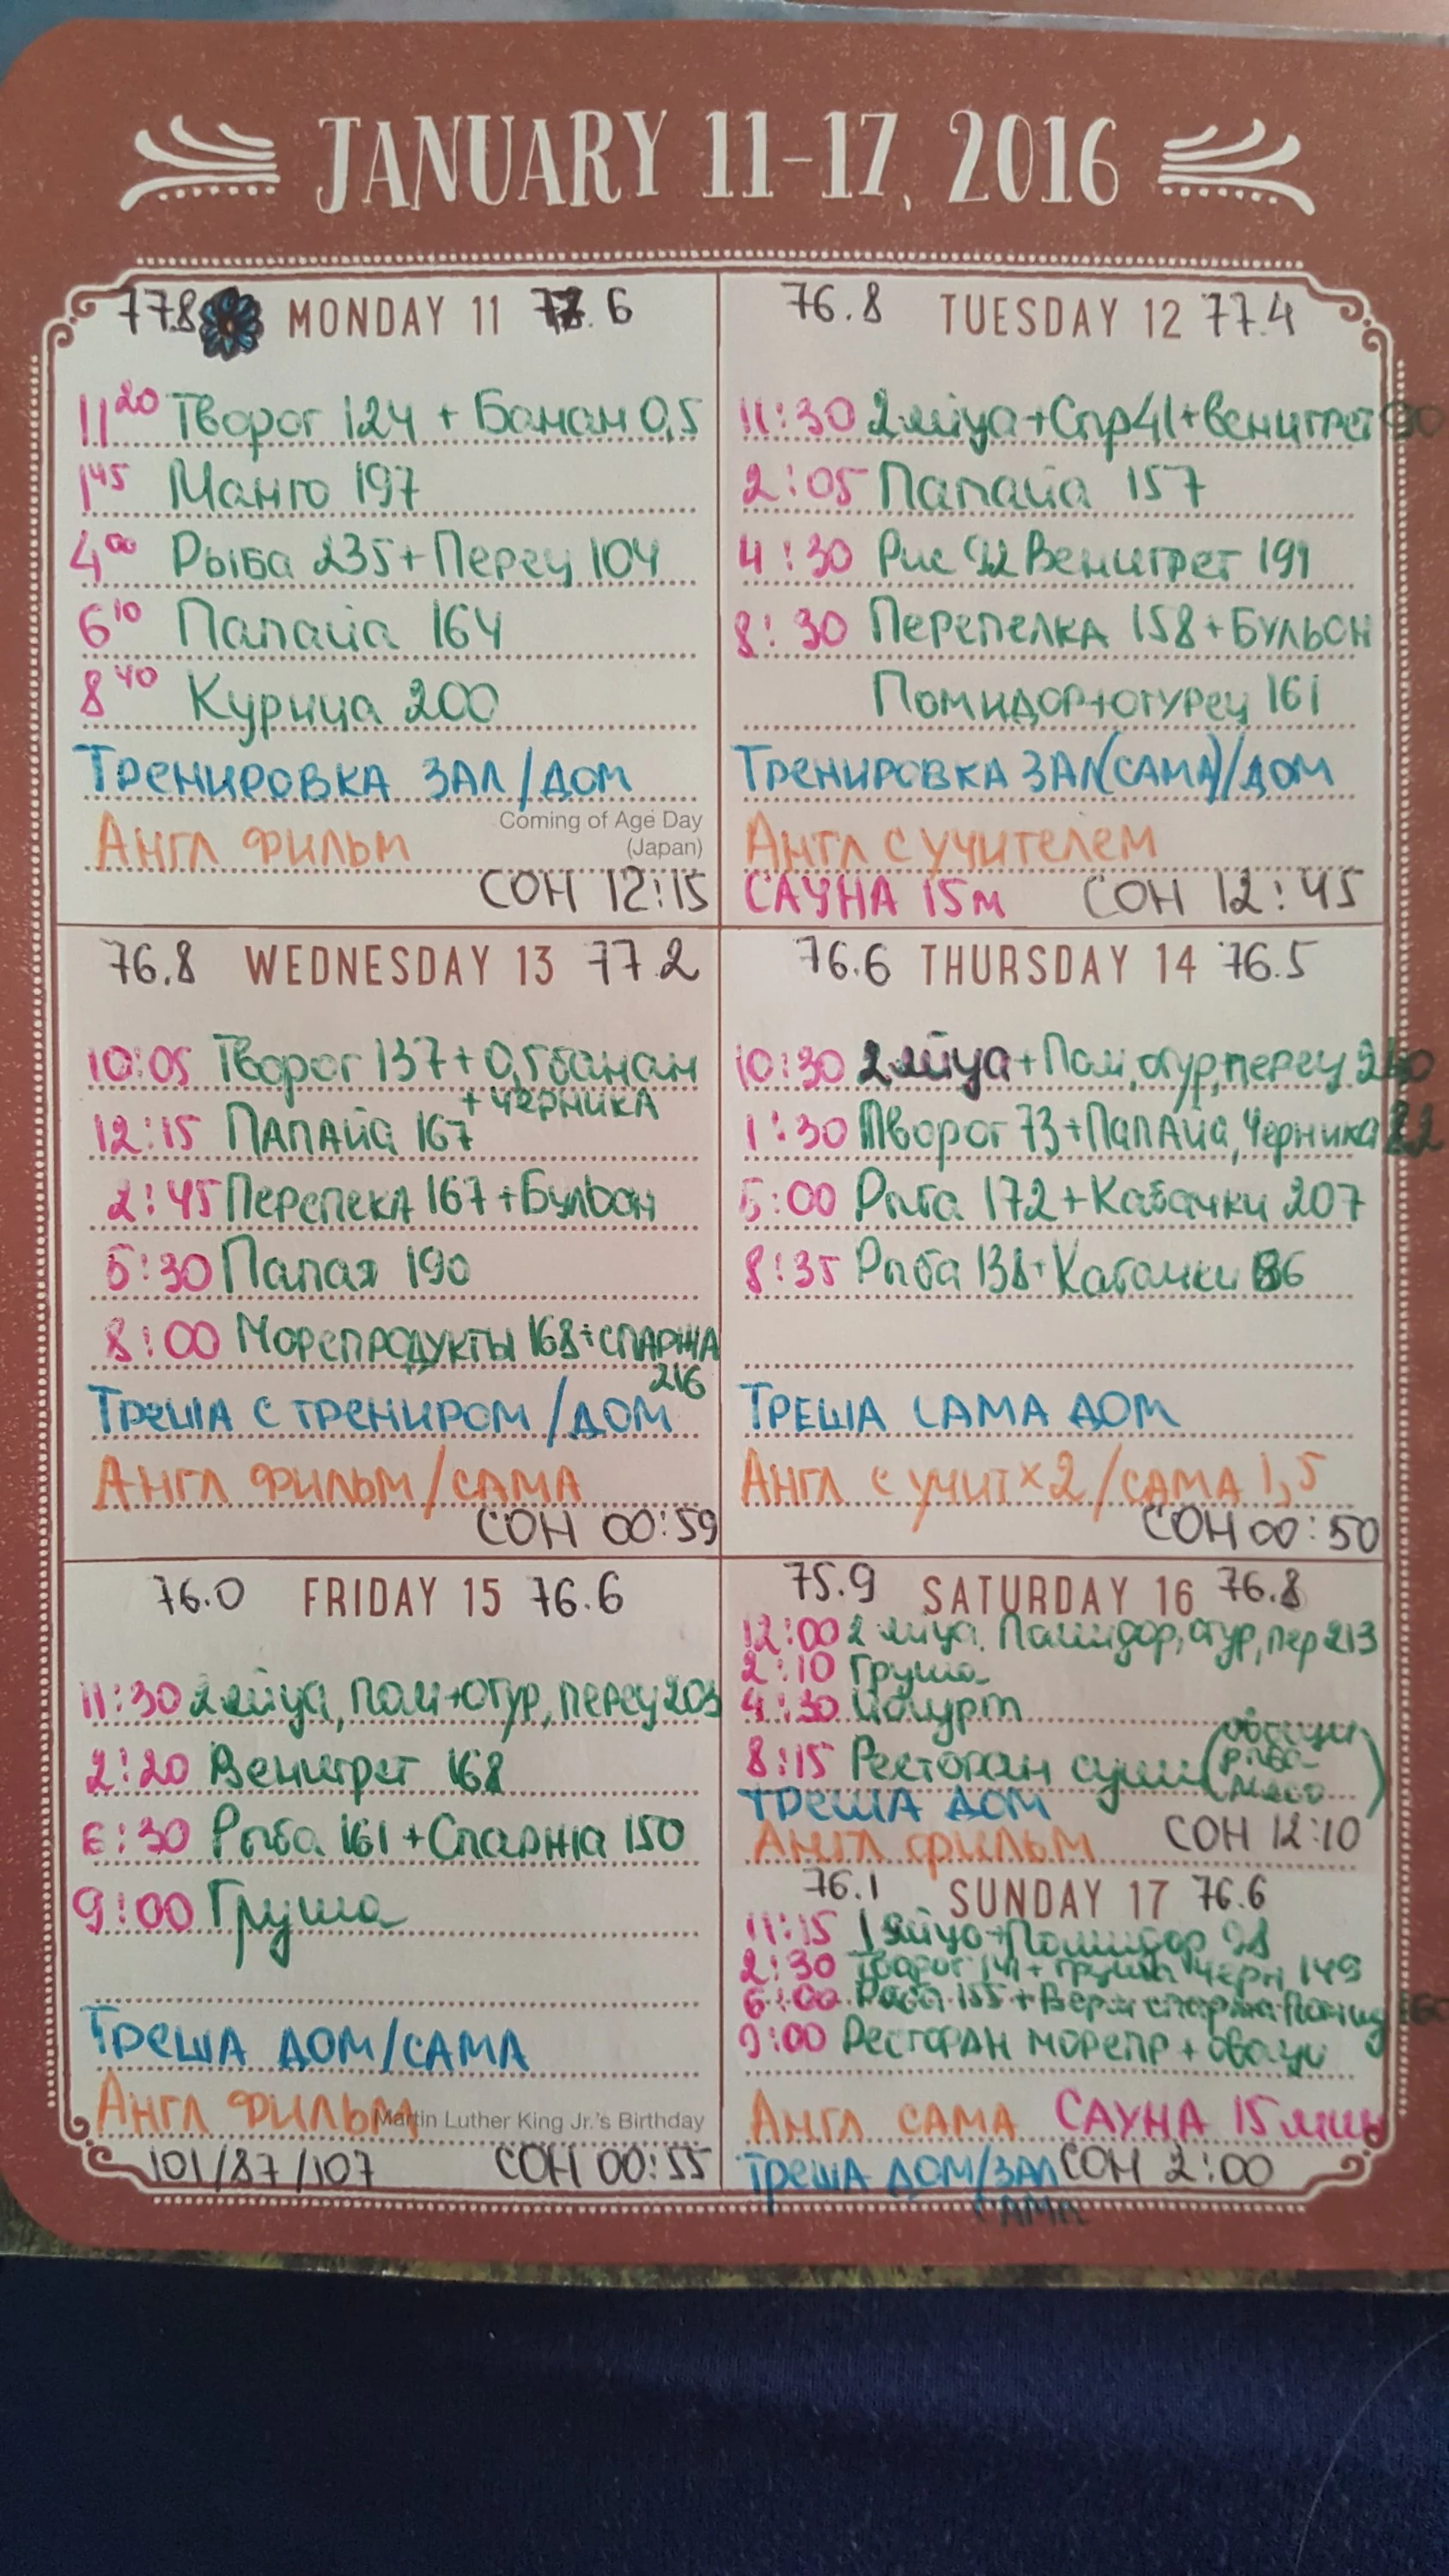 JANUARY 11-17, 2016
77.8 MONDAY 11 77.6
11²⁰ Творог 124 + Банан 0,5
1⁴⁵ Манго 197
4⁰⁰ Рыба 235 + Перец 104
6¹⁰ Папайа 164
8⁴⁰ Курица 200
Тренировка зал/дом
Coming of Age Day
(Japan)
Англ фильм
СОН 12:15
76.8 TUESDAY 12 77.4
11:30 2 яйца + Спр41 + Венигрет
2:05 Папайа 157
4:30 Рис 92 Венигрет 191
8:30 Перепелка 158 + Бульон
Помидор + огурец 161
Тренировка зал(сама)/дом
Англ с учителем
САУНА 15м СОН 12:45
76.8 WEDNESDAY 13 77.2
10:05 Творог 137 + 0,5 банан
+ черника
12:15 Папайа 167
2:45 Перепека 167 + Бульон
5:30 Папая 190
8:00 Морепродукты 168 + спаржа
216
Треша с трениром/дом
Англ фильм/сама
СОН 00:59
76.6 THURSDAY 14 76.5
10:30 2 яйца + Пом, огур, перец
1:30 Творог 73 + Папайа, Черника
5:00 Рыба 172 + Кабачки 207
8:35 Рыба 138 + Кабачки
Треша сама дом
Англ с учит x2/сама 1,5
СОН 00:50
76.0 FRIDAY 15 76.6
11:30 2 яйца, пом + огур, перец 203
2:20 Венигрет 168
6:30 Рыба 161 + Спаржа 150
9:00 Груша
Треша дом/сама
Англ фильм
Martin Luther King Jr.'s Birthday
101/87/107 СОН 00:55
75.9 SATURDAY 16 76.8
12:00 2 яйца, Помидор, огур, пер 213
2:10 Груша
4:30 Йогурт
8:15 Ресторан суши (овощи
рыба
мясо)
Треша дом
Англ фильм СОН 12:10
76.1 SUNDAY 17 76.6
11:15 1 яйцо + Помидор 98
2:30 Творог 141 + груша черн 149
6:00 Рыба 155 + Верм спаржа Помид
9:00 Ресторан морепр + овощи
Англ сама САУНА 15 мин
Треша дом/зал СОН 2:00
сама